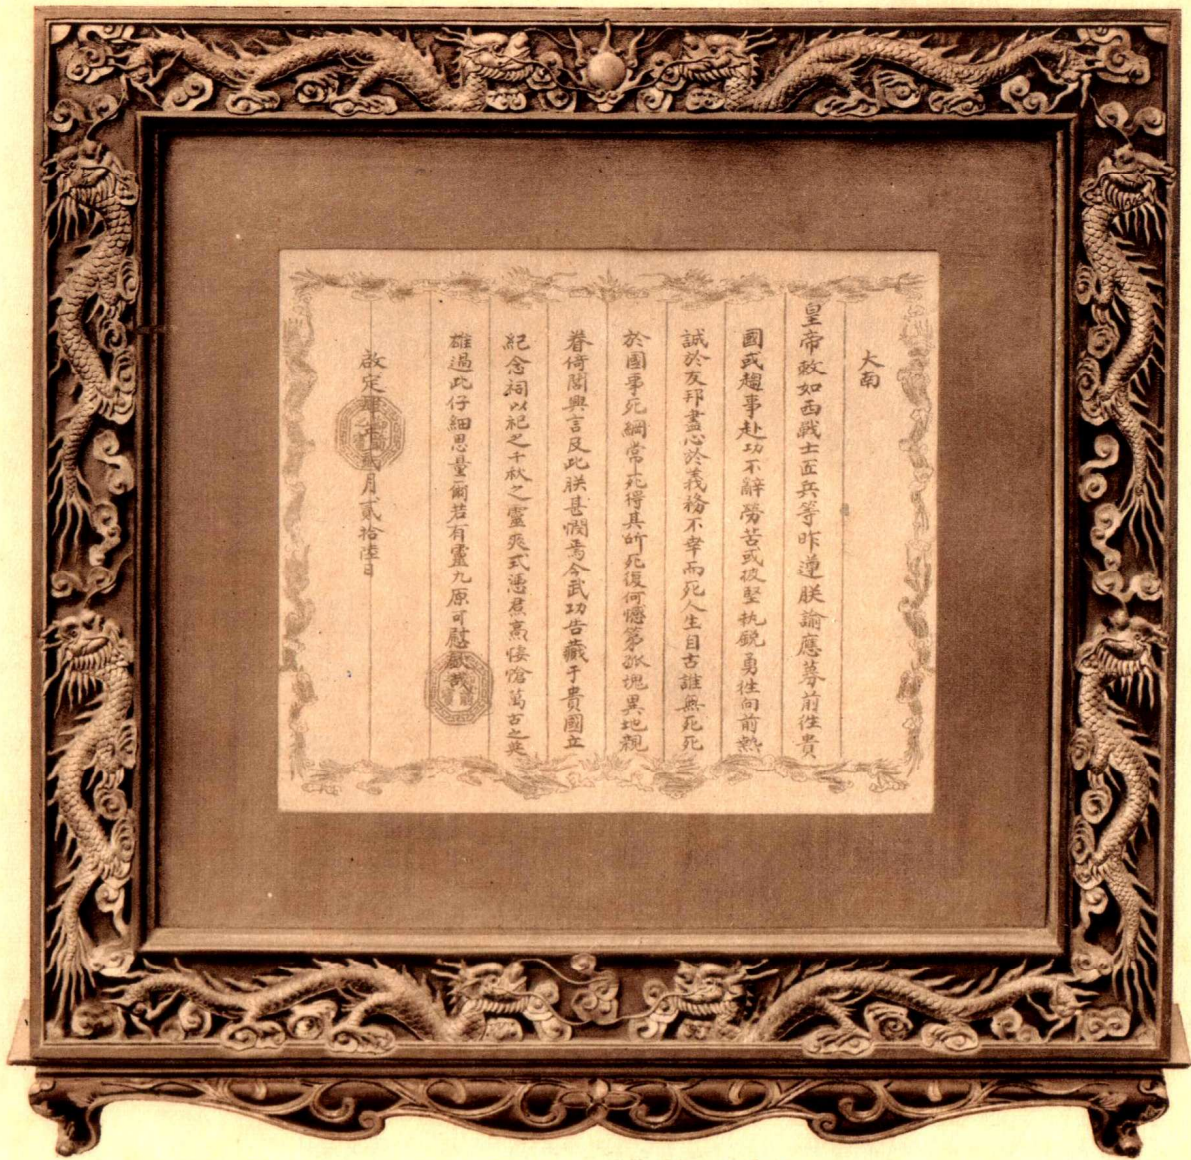 大南
皇帝敕如西戰士匠兵等昨遵朕諭應募前往貴
國或趨事赴功不辭勞苦或披堅执銳勇往向前熱
誠於友邦盡心於義務不幸而死人生自古誰無死死
於國事死綱常死得其所死復何憾第孤塊異地親
眷倚閭興言及此朕甚憫焉今武功告蕆于貴國立
紀念祠以祀之千秋之靈爽式憑焄蒿悽愴萬古之英
雄過此仔細思量爾若有靈九原可慰欽哉
啟定肆年貳月貳拾陸日